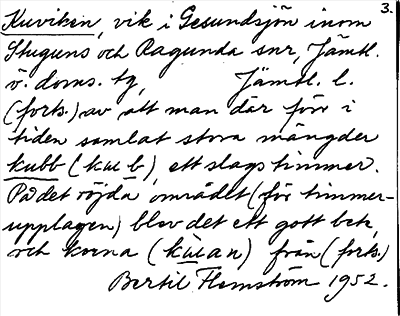 3.
Kuviken, vik i Gesundsjön inom
Stuguns och Ragunda snr, Jämtl.
ö. doms. tg, Jämtl. l.
(forts.) av att man där förr i
tiden samlat stora mängder
kubb (kub), ett slags timmer.
På det röjda området (för timmer-
upplagen) blev det ett gott bete,
och korna (kuan) från (forts.)
Bertil Flemström 1952.